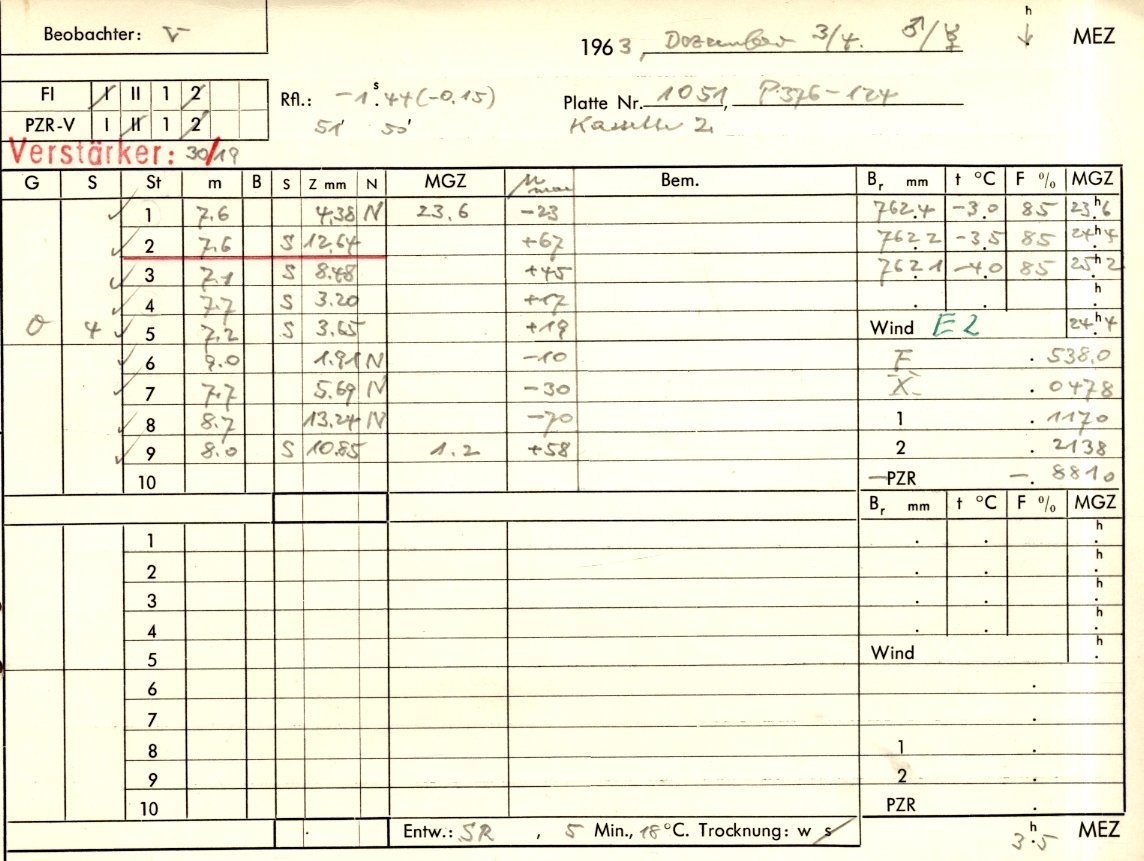 Beobachter: V
1963, Dezember 3/4. ♂/☿ h ↓ MEZ
FI I II 1 2
PZR-V I II 1 2
Rfl.: -1ˢ.44 (-0.15)
51' 50'
Platte Nr. 1051, P.376-124
Kassette 2
Verstärker: 30/19
G S St m B S Z mm N MGZ Bem. Bᵣ mm t °C F % MGZ
1 7.6 4.38 N 23.6 -23 762.4 -3.0 85 23ʰ.6
2 7.6 S 12.64 +67 762.2 -3.5 85 24ʰ.4
3 7.1 S 8.48 +45 762.1 -4.0 85 25ʰ.2
4 7.7 S 3.20 +17 . . h .
0 4 5 7.2 S 3.65 +19 Wind E2 24ʰ.4
6 9.0 1.91 N -10 F . 5380
7 7.7 5.69 N -30 X . 0478
8 8.7 13.24 N -70 1 . 1170
9 8.0 S 10.85 1.2 +58 2 . 2138
10 -PZR -. 8810
Bᵣ mm t °C F % MGZ
1 . . h .
2 . . h .
3 . . h .
4 . . h .
5 Wind h .
6 .
7 .
8 1 .
9 2 .
10 PZR .
. Entw.: SR, 5 Min., 18°C. Trocknung: w s 3ʰ.5 MEZ